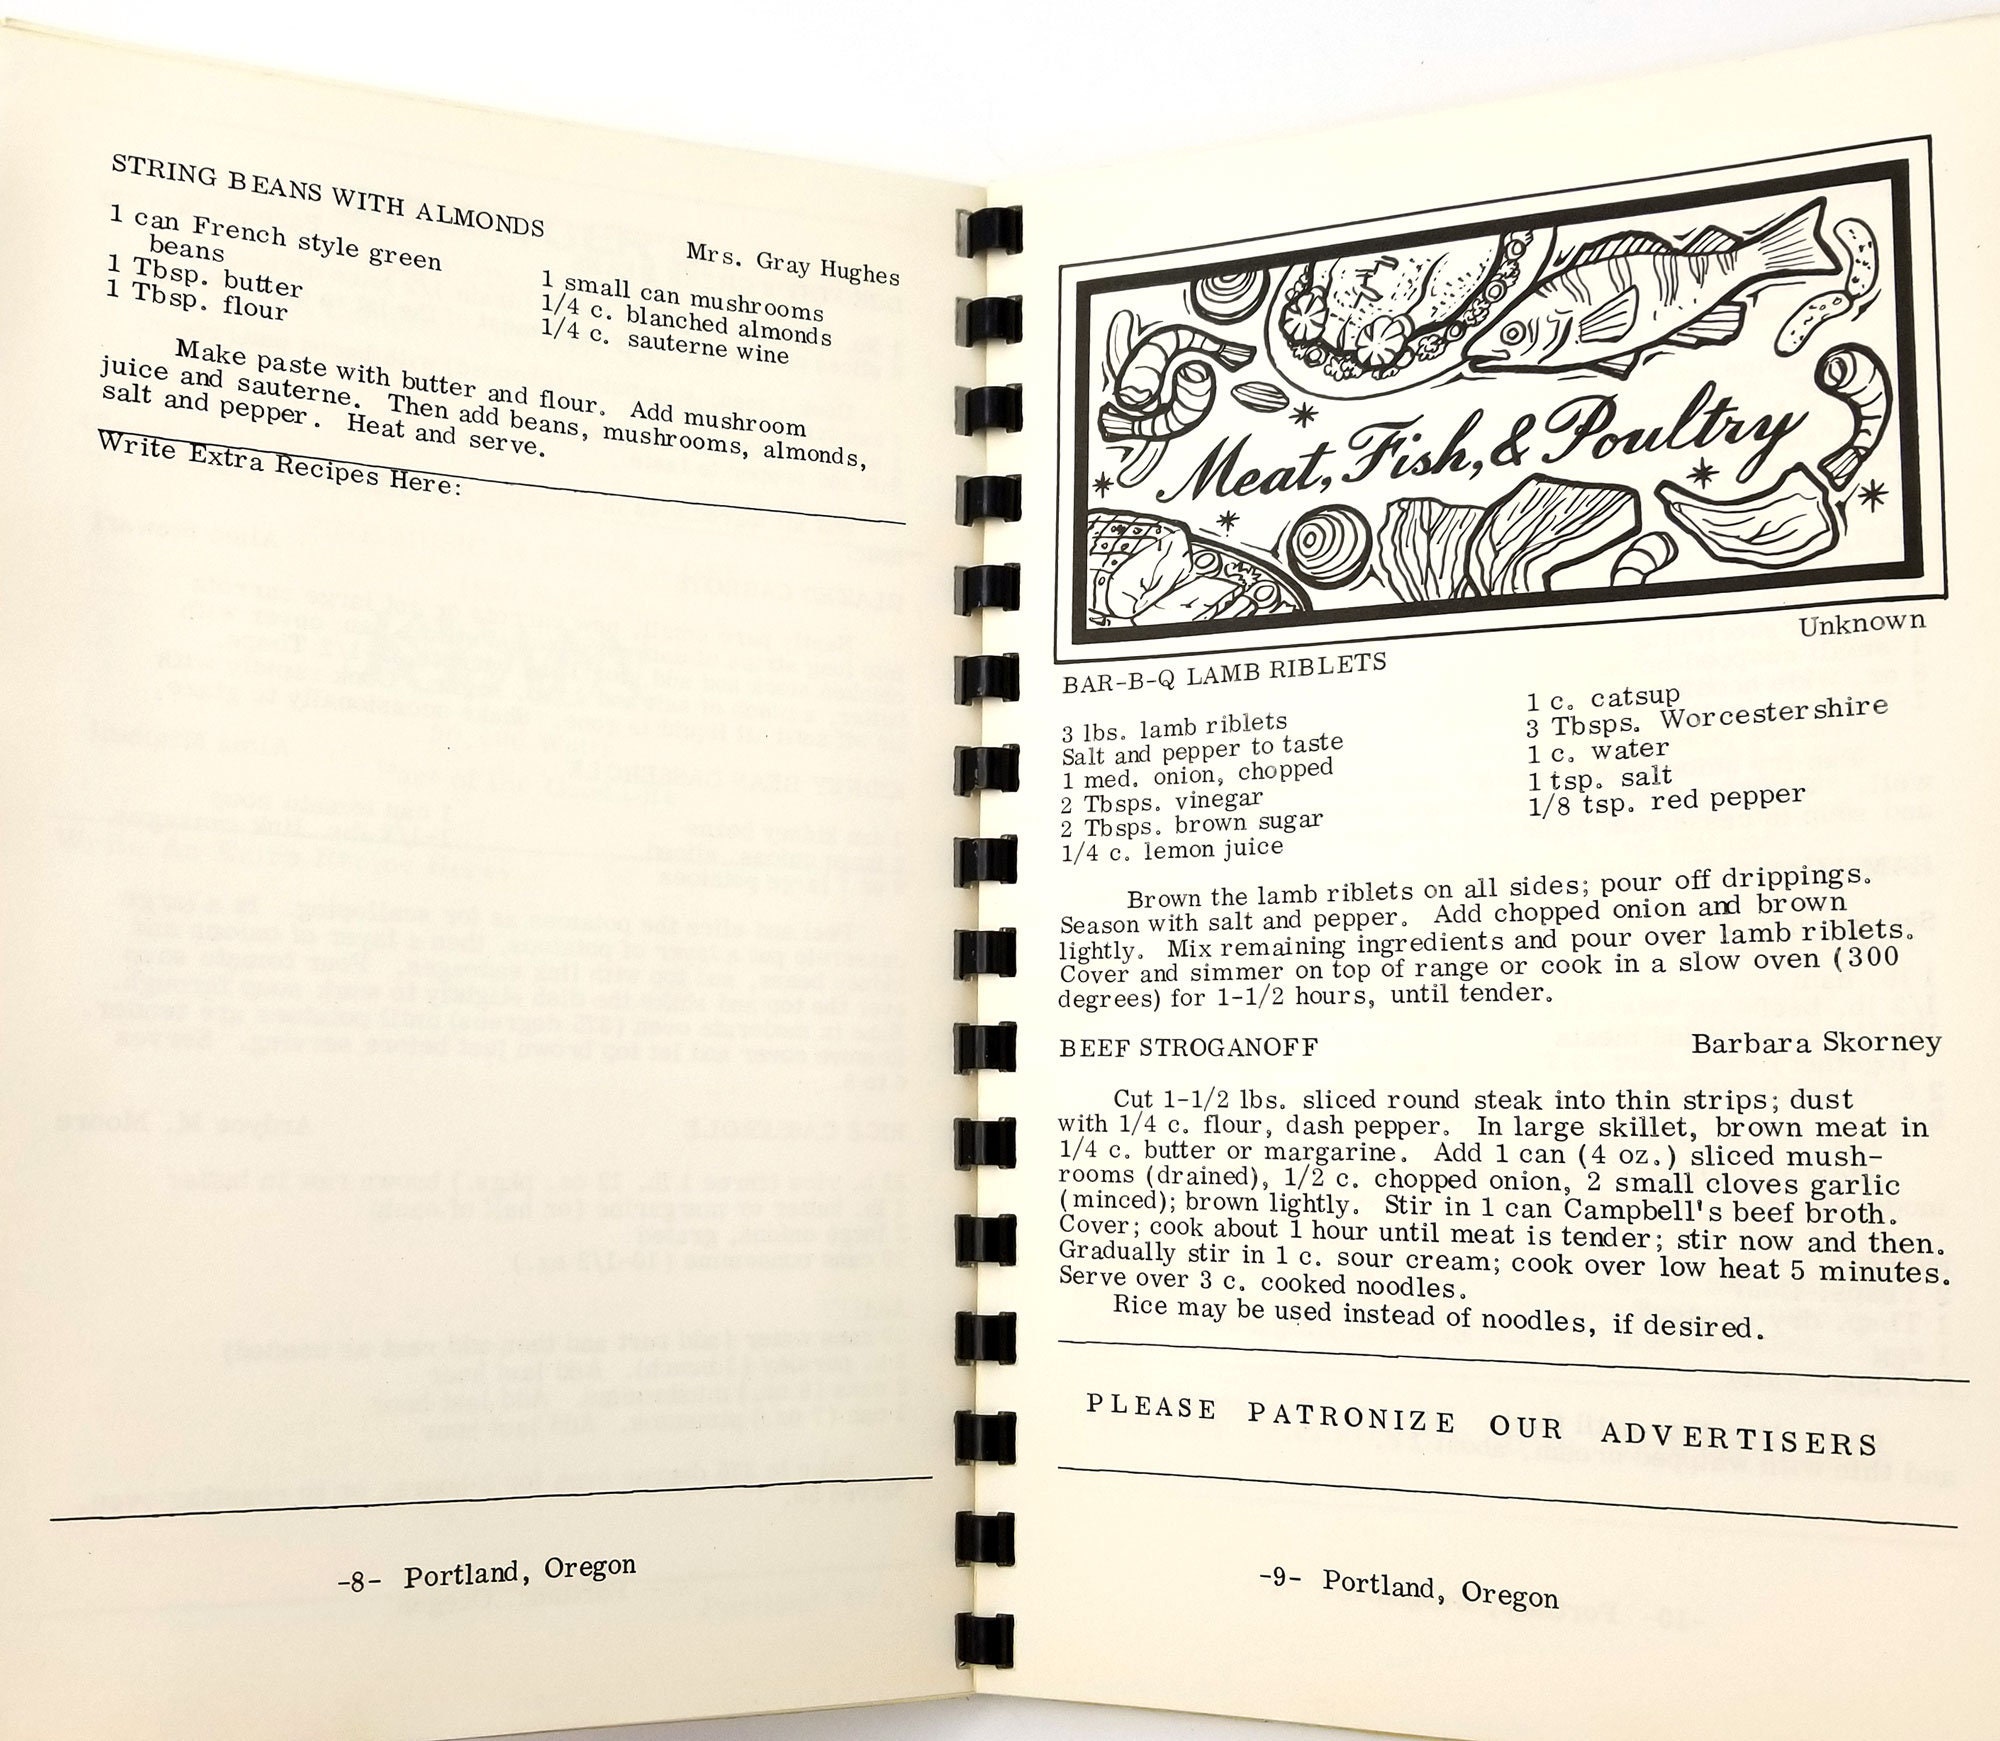 STRING BEANS WITH ALMONDS
Mrs. Gray Hughes
1 can French style green
beans
1 Tbsp. butter
1 Tbsp. flour
1 small can mushrooms
1/4 c. blanched almonds
1/4 c. sauterne wine
Make paste with butter and flour. Add mushroom
juice and sauterne. Then add beans, mushrooms, almonds,
salt and pepper. Heat and serve.
Write Extra Recipes Here:
-8- Portland, Oregon
Meat, Fish, & Poultry
Unknown
BAR-B-Q LAMB RIBLETS
3 lbs. lamb riblets
Salt and pepper to taste
1 med. onion, chopped
2 Tbsps. vinegar
2 Tbsps. brown sugar
1/4 c. lemon juice
1 c. catsup
3 Tbsps. Worcestershire
1 c. water
1 tsp. salt
1/8 tsp. red pepper
Brown the lamb riblets on all sides; pour off drippings.
Season with salt and pepper. Add chopped onion and brown
lightly. Mix remaining ingredients and pour over lamb riblets.
Cover and simmer on top of range or cook in a slow oven (300
degrees) for 1-1/2 hours, until tender.
BEEF STROGANOFF
Barbara Skorney
Cut 1-1/2 lbs. sliced round steak into thin strips; dust
with 1/4 c. flour, dash pepper. In large skillet, brown meat in
1/4 c. butter or margarine. Add 1 can (4 oz.) sliced mush-
rooms (drained), 1/2 c. chopped onion, 2 small cloves garlic
(minced); brown lightly. Stir in 1 can Campbell's beef broth.
Cover; cook about 1 hour until meat is tender; stir now and then.
Gradually stir in 1 c. sour cream; cook over low heat 5 minutes.
Serve over 3 c. cooked noodles.
Rice may be used instead of noodles, if desired.
PLEASE PATRONIZE OUR ADVERTISERS
-9- Portland, Oregon